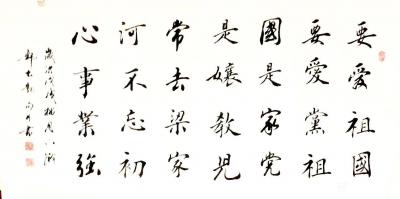 要愛祖國
要愛黨祖
國是家党
是孃教兒
常去梁家
河不忘初
心事業強
歲次戊戌
書